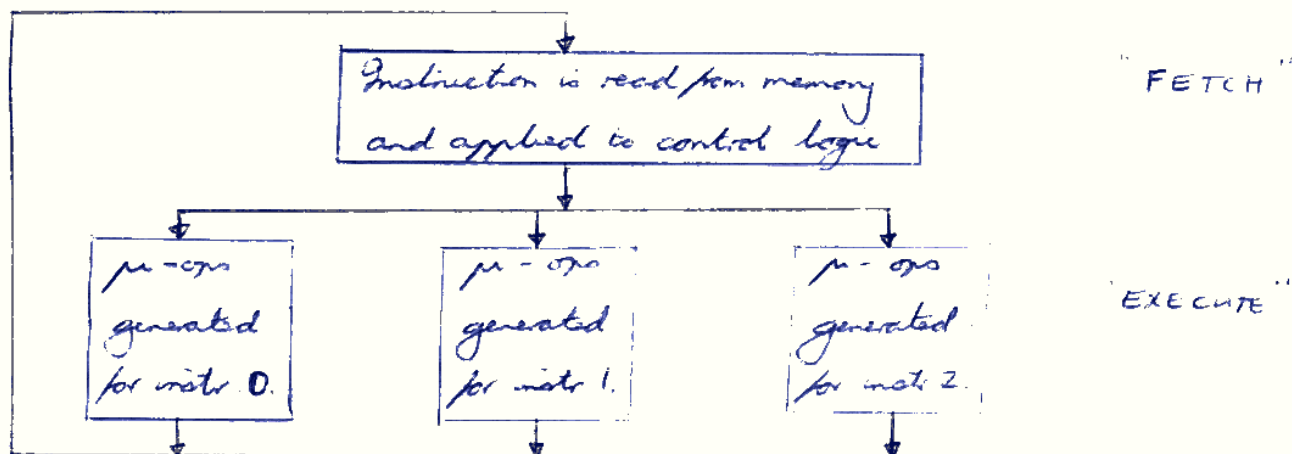 Instruction is read from memory
and applied to control logic
"FETCH"
μ-ops
generated
for instr 0.
μ-ops
generated
for instr 1.
μ-ops
generated
for instr 2.
"EXECUTE"